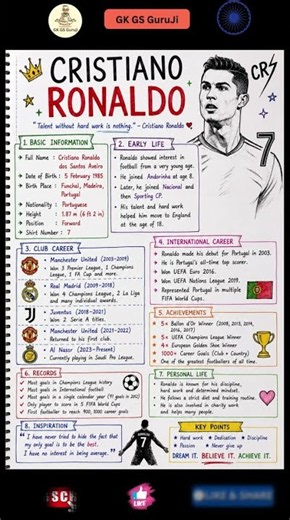 GK GS GuruJi
GK GS GuruJi
CRISTIANO
RONALDO
"Talent without hard work is nothing." - Cristiano Ronaldo
CR7
7
1. BASIC INFORMATION
Full Name : Cristiano Ronaldo
dos Santos Aveiro
Date of Birth : 5 February 1985
Birth Place : Funchal, Madeira,
Portugal
Nationality : Portuguese
Height : 1.87 m (6 ft 2 in)
Position : Forward
Shirt Number : 7
2. EARLY LIFE
Ronaldo showed interest in
football from a very young age.
He joined Andorinha at age 8.
Later, he joined Nacional and
then Sporting CP.
His talent and hard work
helped him move to England
at the age of 18.
3. CLUB CAREER
Manchester United (2003-2009)
Won 3 Premier League, 1 Champions
League, 1 FA Cup and more.
Real Madrid (2009-2018)
Won 4 Champions League, 2 La Liga
and many individual awards.
Juventus (2018-2021)
Won 2 Serie A titles.
Manchester United (2021-2022)
Returned to his first club.
Al Nassr (2023-Present)
Currently playing in Saudi Pro League.
4. INTERNATIONAL CAREER
Ronaldo made his debut for Portugal in 2003.
He is Portugal's all-time top scorer.
Won UEFA Euro 2016.
Won UEFA Nations League 2019.
Represented Portugal in multiple
FIFA World Cups.
5. ACHIEVEMENTS
5× Ballon d'Or Winner (2008, 2013, 2014,
2016, 2017)
5× UEFA Champions League Winner
4× European Golden Shoe Winner
1000+ Career Goals (Club + Country)
One of the greatest footballers of all time.
6. RECORDS
Most goals in Champions League history
Most goals in International football
Most goals in a single calendar year
Only player to score in 5 FIFA World Cups
First footballer to reach 900, 1000 career goals
7. PERSONAL LIFE
Ronaldo is known for his discipline,
hard work and determined mindset.
He follows a strict diet and training routine.
He is also involved in charity work
and helps many people.
8. INSPIRATION
"I have never tried to hide the fact that
my only goal is to be the best.
I have no interest in being average."
KEY POINTS
Hard work Dedication Discipline
Passion Never give up
DREAM IT. BELIEVE IT. ACHIEVE IT.
SC
LIKE
LIKE & SHARE